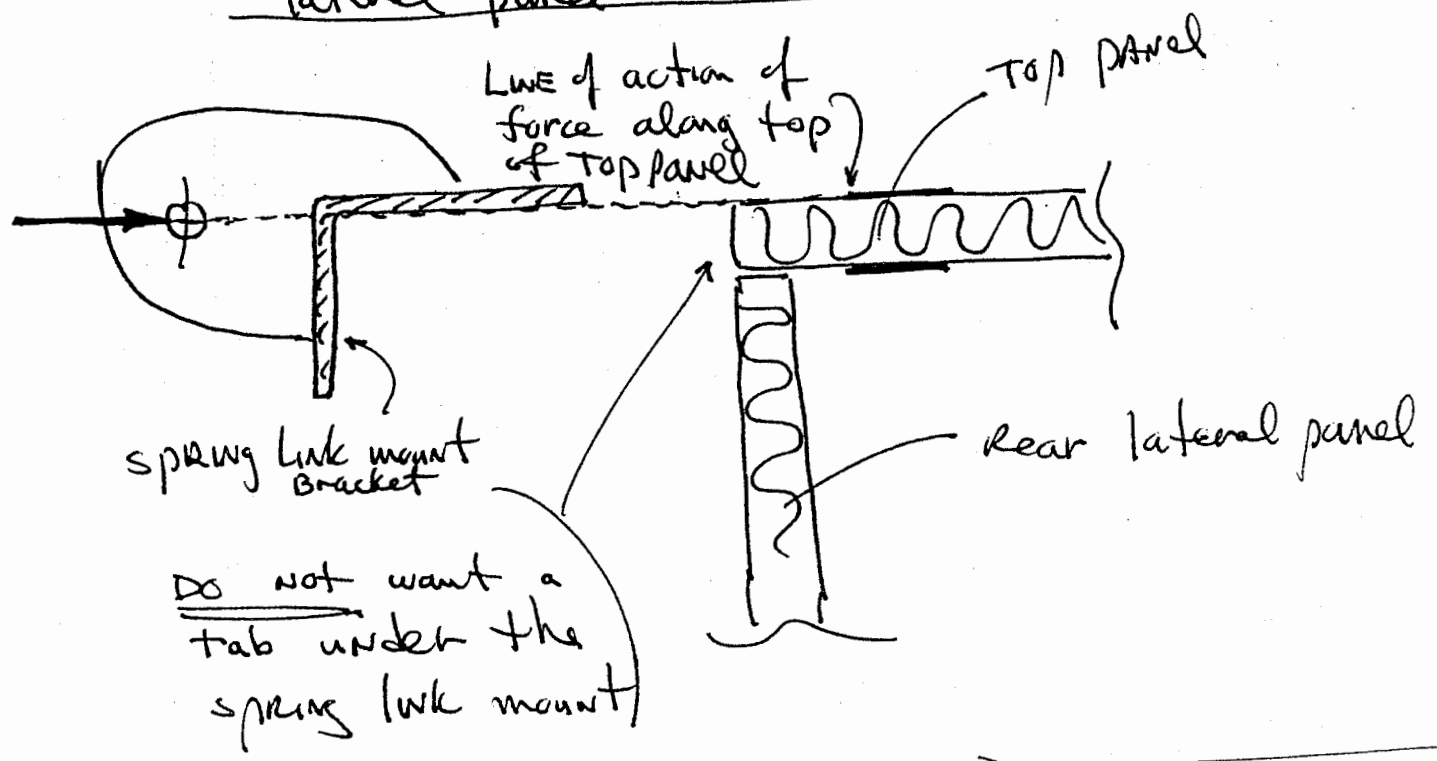 panel
LINE of action of
force along top
of TOP PANEL
TOP PANEL
SPRING LINK mount
Bracket
Rear lateral panel
DO NOT want a
tab under the
SPRING link mount